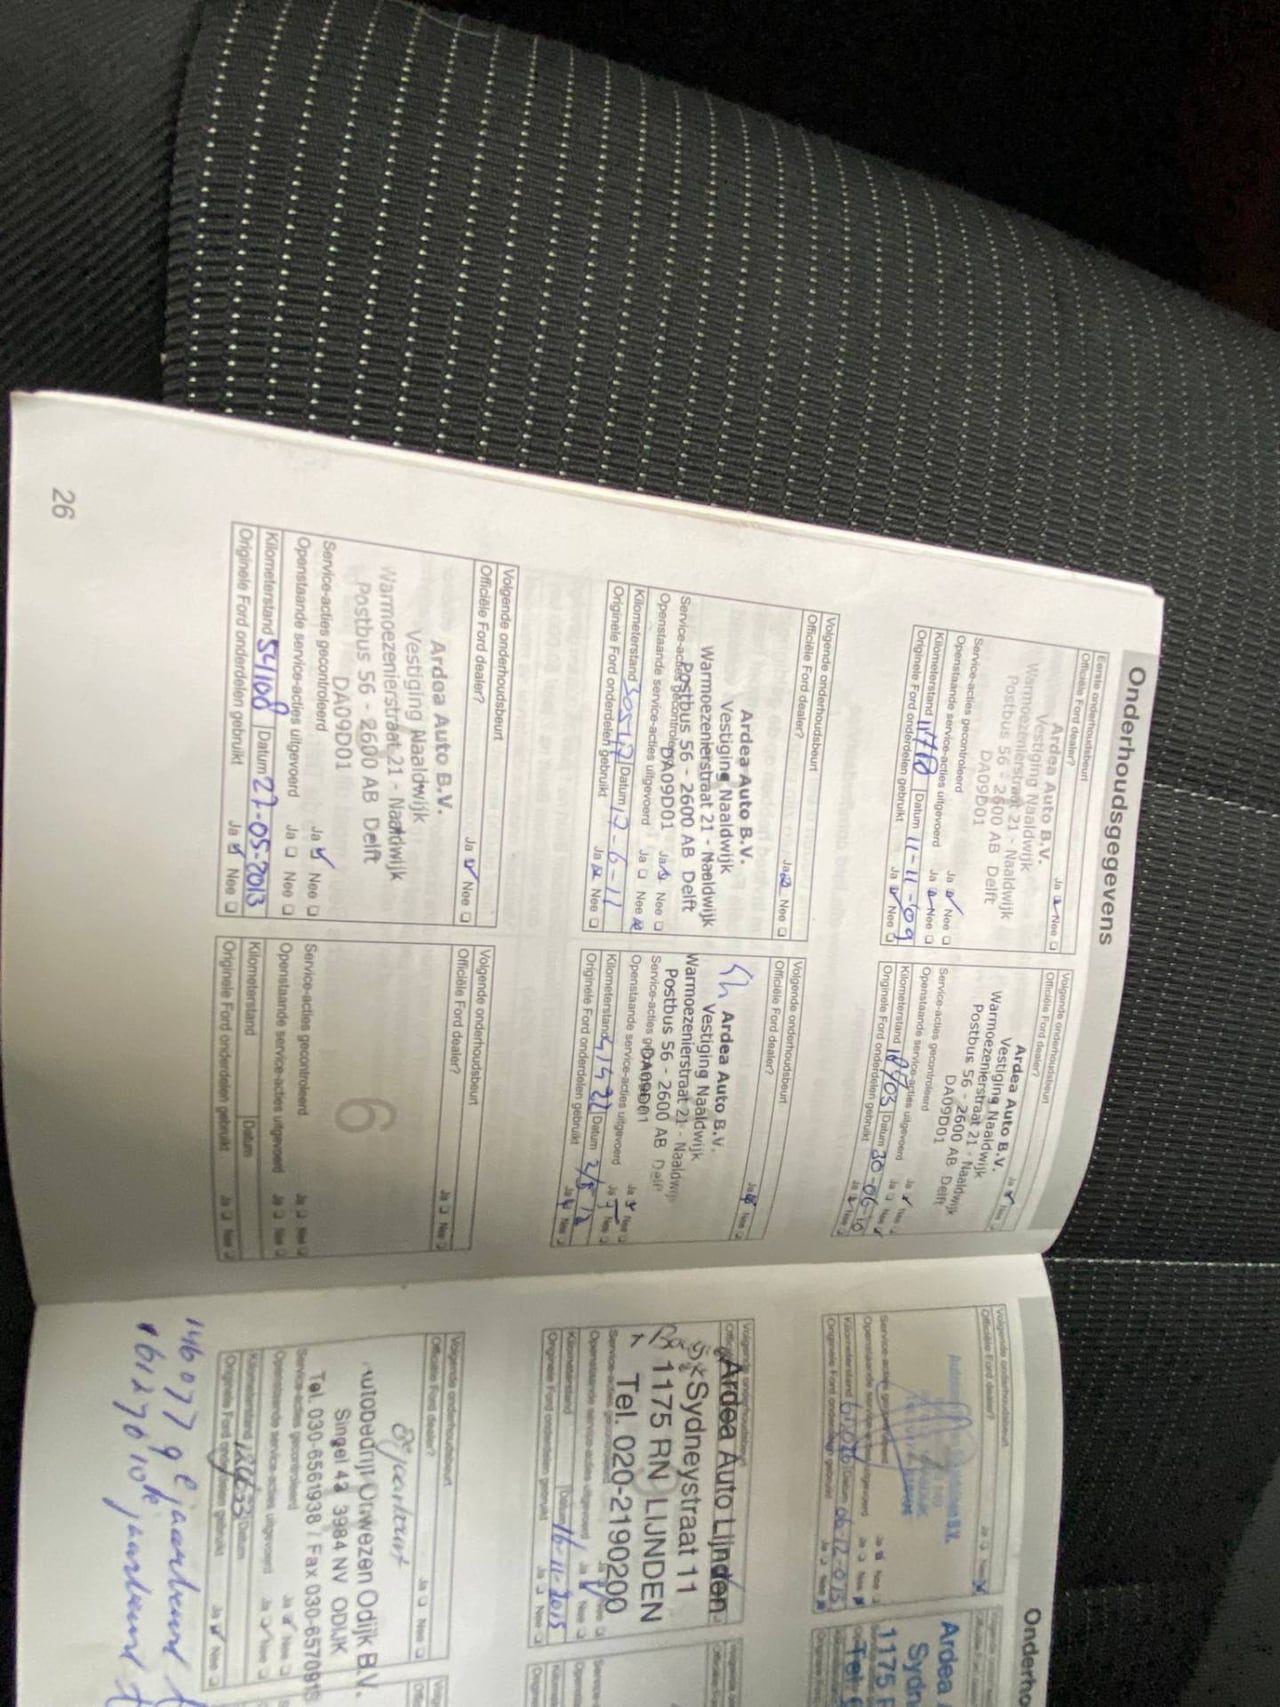 Onderhoudsgegevens
Eerste onderhoudsbeurt
Officiële Ford dealer? Ja Nee
Ardea Auto B.V.
Vestiging Naaldwijk
Warmoezenierstraat 21 - Naaldwijk
Postbus 56 - 2600 AB Delft
DA09D01
Service-acties gecontroleerd Ja Nee
Openstaande service-acties uitgevoerd Ja Nee
Kilometerstand Datum 11-11-09
Originele Ford onderdelen gebruikt Ja Nee
Volgende onderhoudsbeurt
Officiële Ford dealer? Ja Nee
Ardea Auto B.V.
Vestiging Naaldwijk
Warmoezenierstraat 21 - Naaldwijk
Postbus 56 - 2600 AB Delft
DA09D01
Service-acties gecontroleerd Ja Nee
Openstaande service-acties uitgevoerd Ja Nee
Kilometerstand Datum 30-06-10
Originele Ford onderdelen gebruikt Ja Nee
Volgende onderhoudsbeurt
Officiële Ford dealer? Ja Nee
Ardea Auto B.V.
Vestiging Naaldwijk
Warmoezenierstraat 21 - Naaldwijk
Postbus 56 - 2600 AB Delft
Service-acties gecontroleerd DA09D01 Ja Nee
Openstaande service-acties uitgevoerd Ja Nee
Kilometerstand 30517 Datum 17-6-11
Originele Ford onderdelen gebruikt Ja Nee
Volgende onderhoudsbeurt
Officiële Ford dealer? Ja Nee
Ardea Auto B.V.
Vestiging Naaldwijk
Warmoezenierstraat 21 - Naaldwijk
Postbus 56 - 2600 AB Delft
Service-acties DA09D01 Ja Nee
Openstaande service-acties uitgevoerd Ja Nee
Kilometerstand Datum
Originele Ford onderdelen gebruikt Ja Nee
Volgende onderhoudsbeurt
Officiële Ford dealer? Ja Nee
Ardea Auto B.V.
Vestiging Naaldwijk
Warmoezenierstraat 21 - Naaldwijk
Postbus 56 - 2600 AB Delft
DA09D01
Service-acties gecontroleerd Ja Nee
Openstaande service-acties uitgevoerd Ja Nee
Kilometerstand 54108 Datum 27-05-2013
Originele Ford onderdelen gebruikt Ja Nee
Volgende onderhoudsbeurt
Officiële Ford dealer? Ja Nee
6
Service-acties gecontroleerd Ja Nee
Openstaande service-acties uitgevoerd Ja Nee
Kilometerstand Datum
Originele Ford onderdelen gebruikt Ja Nee
26
Onderho
Volgende onderhoudsbeurt
Officiële Ford dealer? Ja Nee
B.V.
Kilometerstand Datum
Originele Ford onderdelen gebruikt Ja Nee
Ardea
Sydn
1175
Volgende onderhoudsbeurt
Ardea Auto Lijnden
Sydneystraat 11
1175 RN LIJNDEN
Tel. 020-2190200
Openstaande service-acties uitgevoerd Ja Nee
Kilometerstand Datum 16-11-2015
Originele Ford onderdelen gebruikt Ja Nee
Volgende onderhoudsbeurt
Officiële Ford dealer? Ja Nee
Odijk B.V.
Singel 42 3984 NV ODIJK
Tel. 030-6561938 / Fax 030-657091
Service-acties gecontroleerd Ja Nee
Openstaande service-acties uitgevoerd Ja Nee
Kilometerstand Datum
Originele Ford onderdelen gebruikt Ja Nee
146077 9e jaarbeurt
161270 10e jaarbeurt